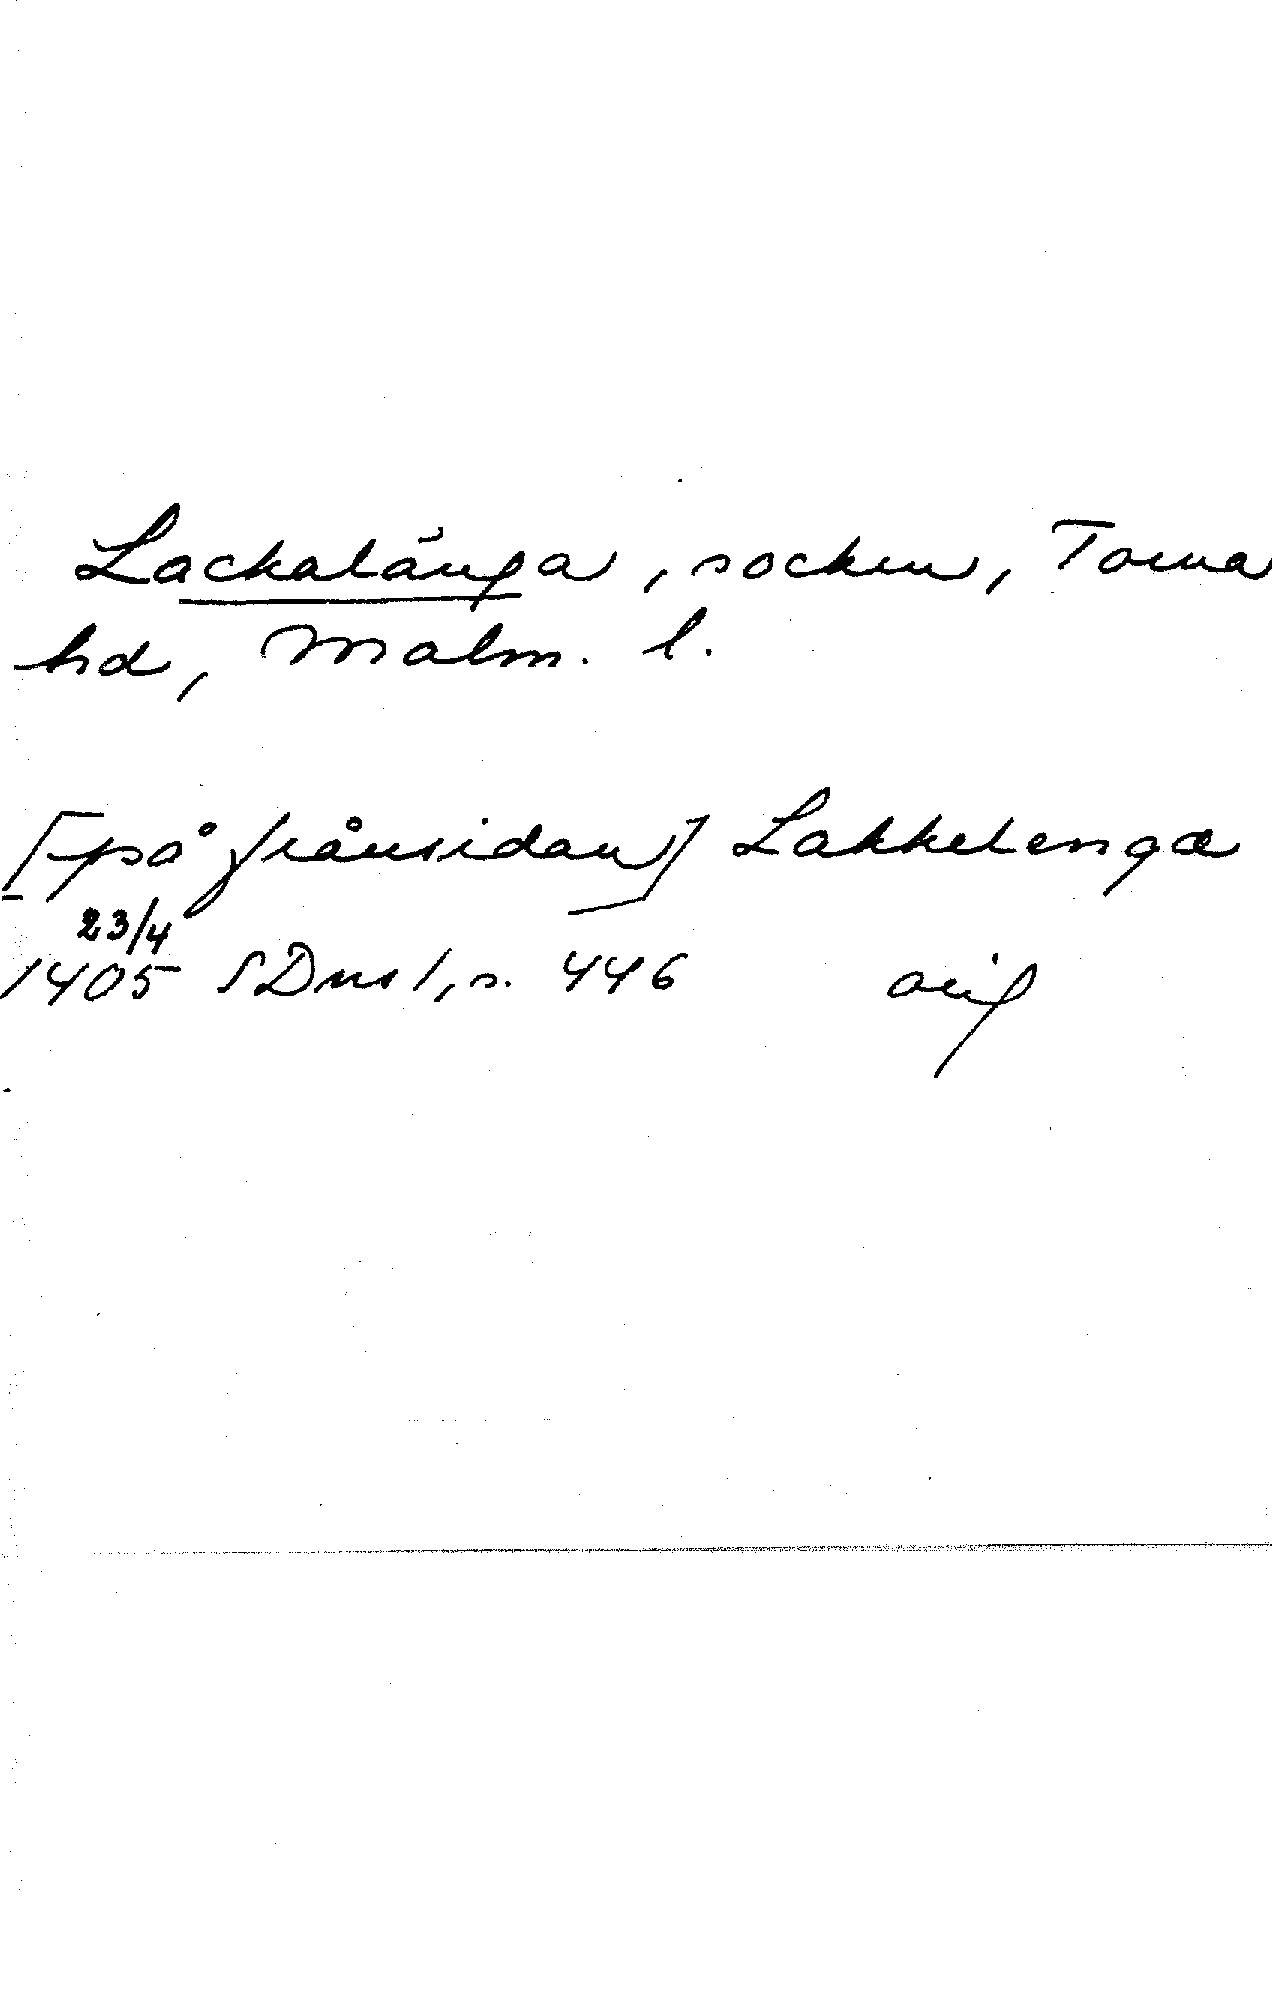 Lackalänga, socken, Torna
hd, Malm. l.
[på frånsidan] Lakkelengæ
23/4
1405 SDns 1, s. 446 orig